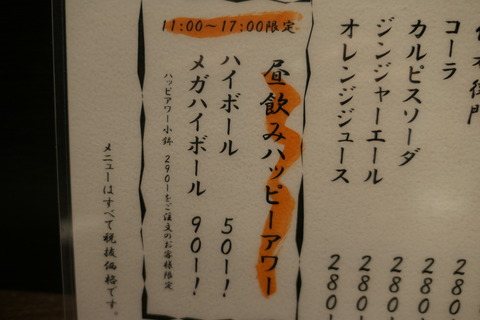 コーラ 280
カルピスソーダ 280ー
ジンジャーエール 280ー
オレンジジュース 280ー
11:00〜17:00限定
昼飲みハッピーアワー
ハイボール 50ー!
メガハイボール 90ー!
ハッピアワー小鉢 290ーをご注文のお客様限定
メニューはすべて税抜価格です。